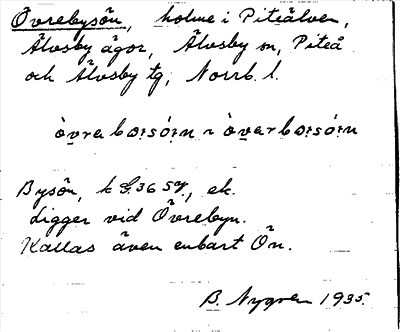 Övrebysön, holme i Piteälven,
Älvsby ägor, Älvsby sn, Piteå
och Älvsby tg, Norrb. l.
òvrebo:só:n ~ òverbo:só:n
Bysön, k G.36 S7, ek.
Ligger vid Övrebyn.
Kallas även enbart Ön.
B. Nygren 1935.